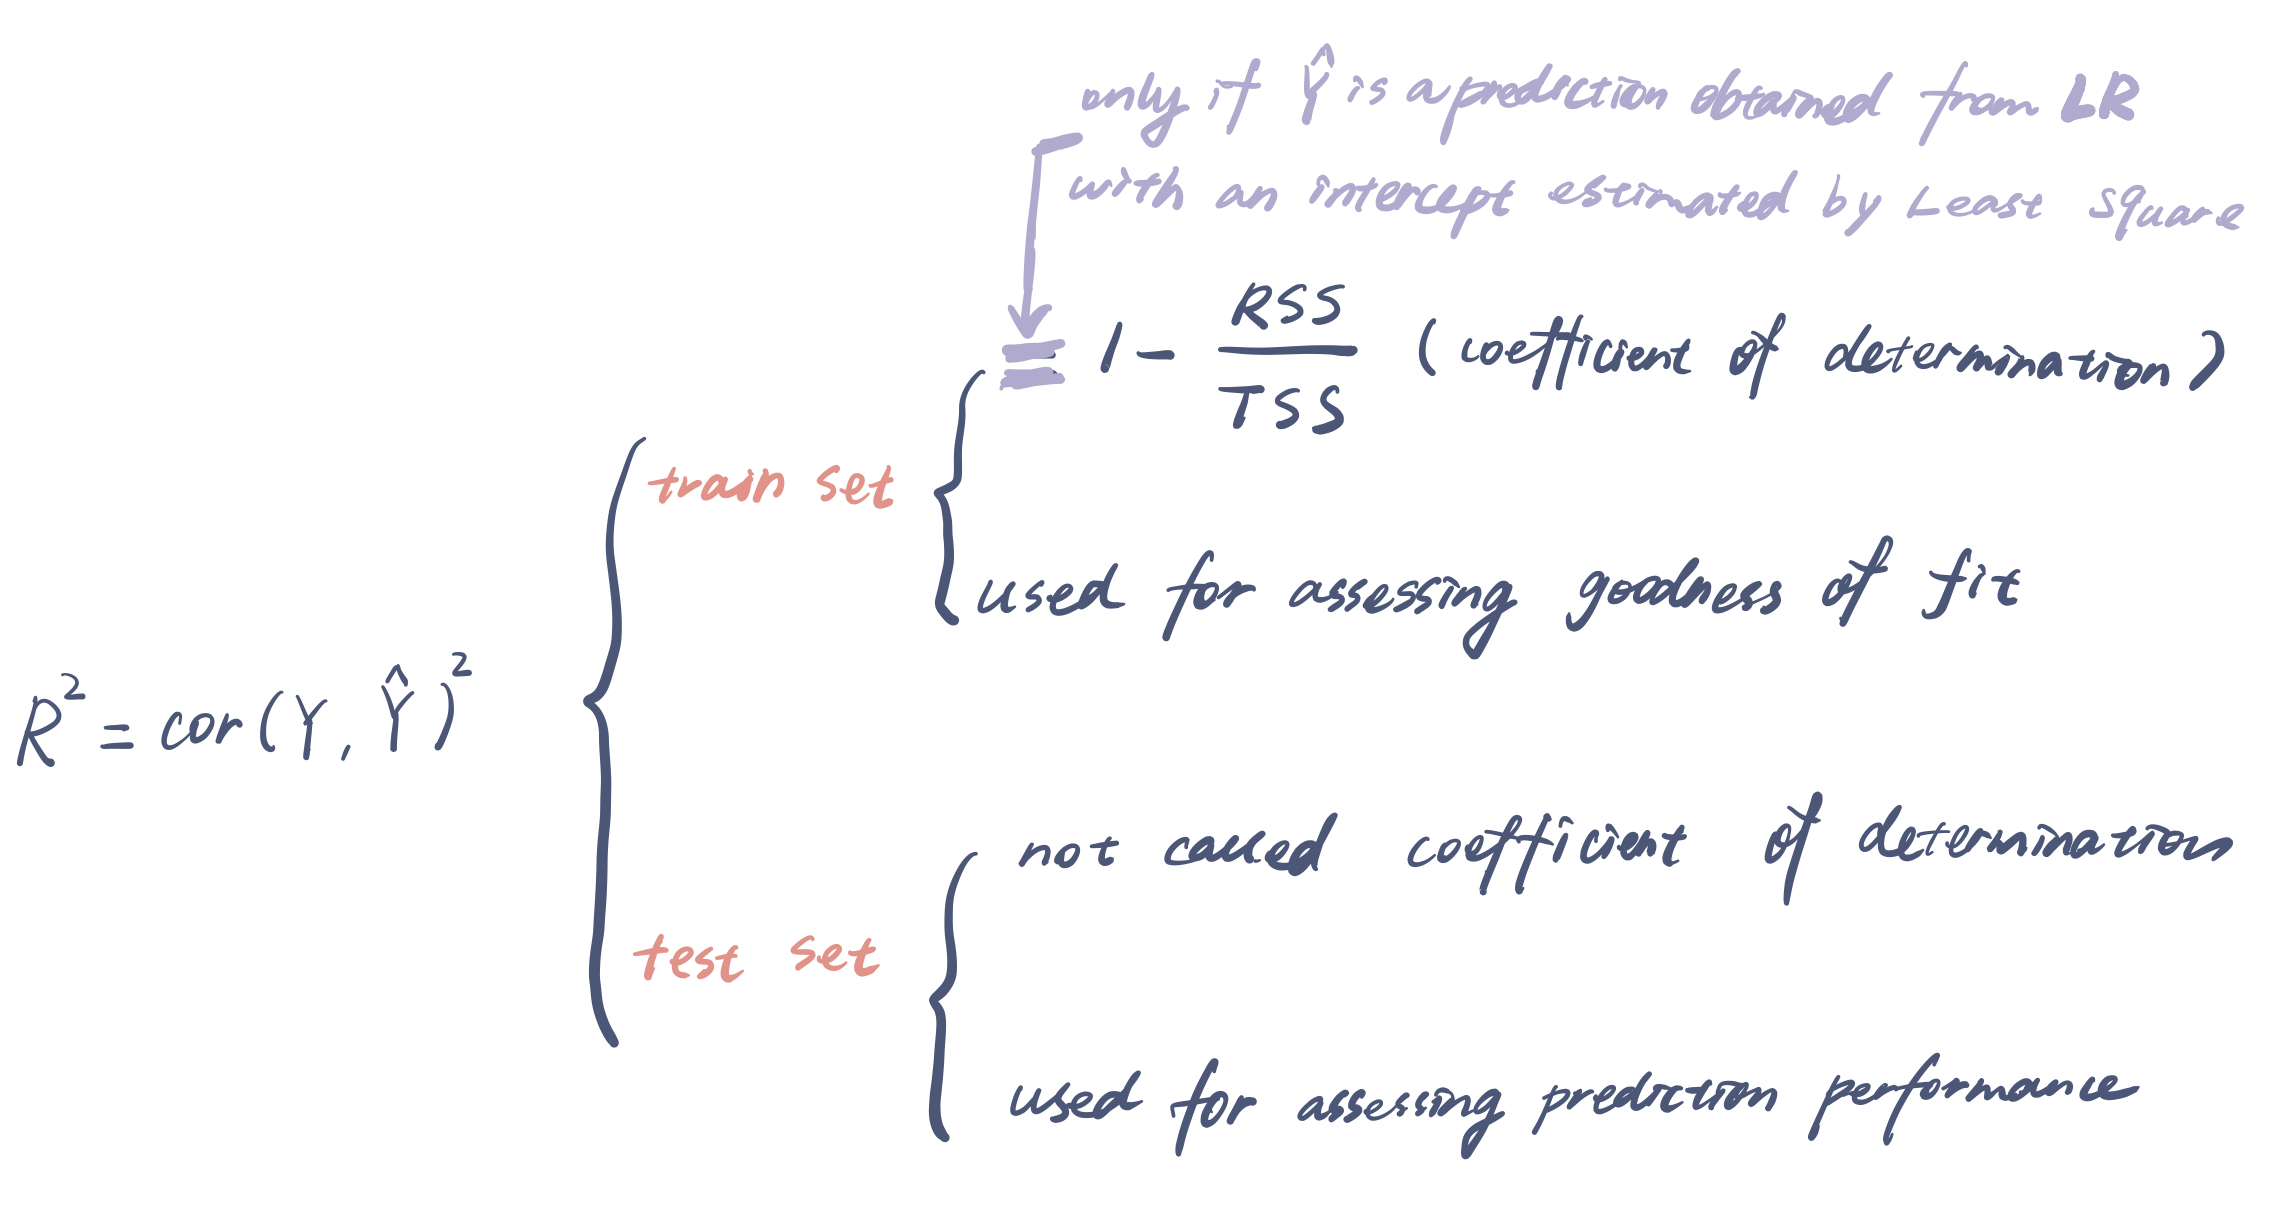 only if Ŷ is a prediction obtained from LR
with an intercept estimated by Least square
= 1 - RSS/TSS (coefficient of determination)
train set
used for assessing goodness of fit
R² = cor(Y, Ŷ)²
not called coefficient of determination
test set
used for assessing prediction performance